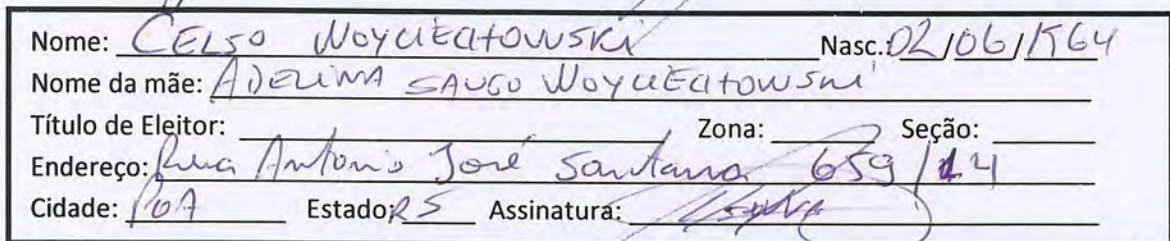 Nome: CELSO WOYCIECHOWSKI Nasc.: 02/06/1964
Nome da mãe: ADELINA SAUGO WOYCIECHOWSKI
Título de Eleitor: Zona: Seção:
Endereço: Rua Antonio José Santana 659/14
Cidade: POA Estado: RS Assinatura: